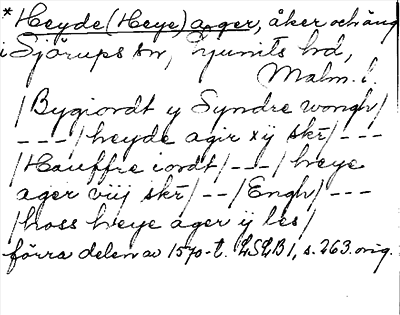 * Heyde (Heye) agger, åker och äng
i Sjörups sn, Ljunits hd,
Malm. l.
/Bygiordt y Syndre wongh/
---/heyde agir xij skr/---
/Hauffre iordt/---/heye
ager viij skr/--/Engh/---
/hoss heye ager ij les/
förra delen av 1570-t. LSLB 1, s. 263. orig.